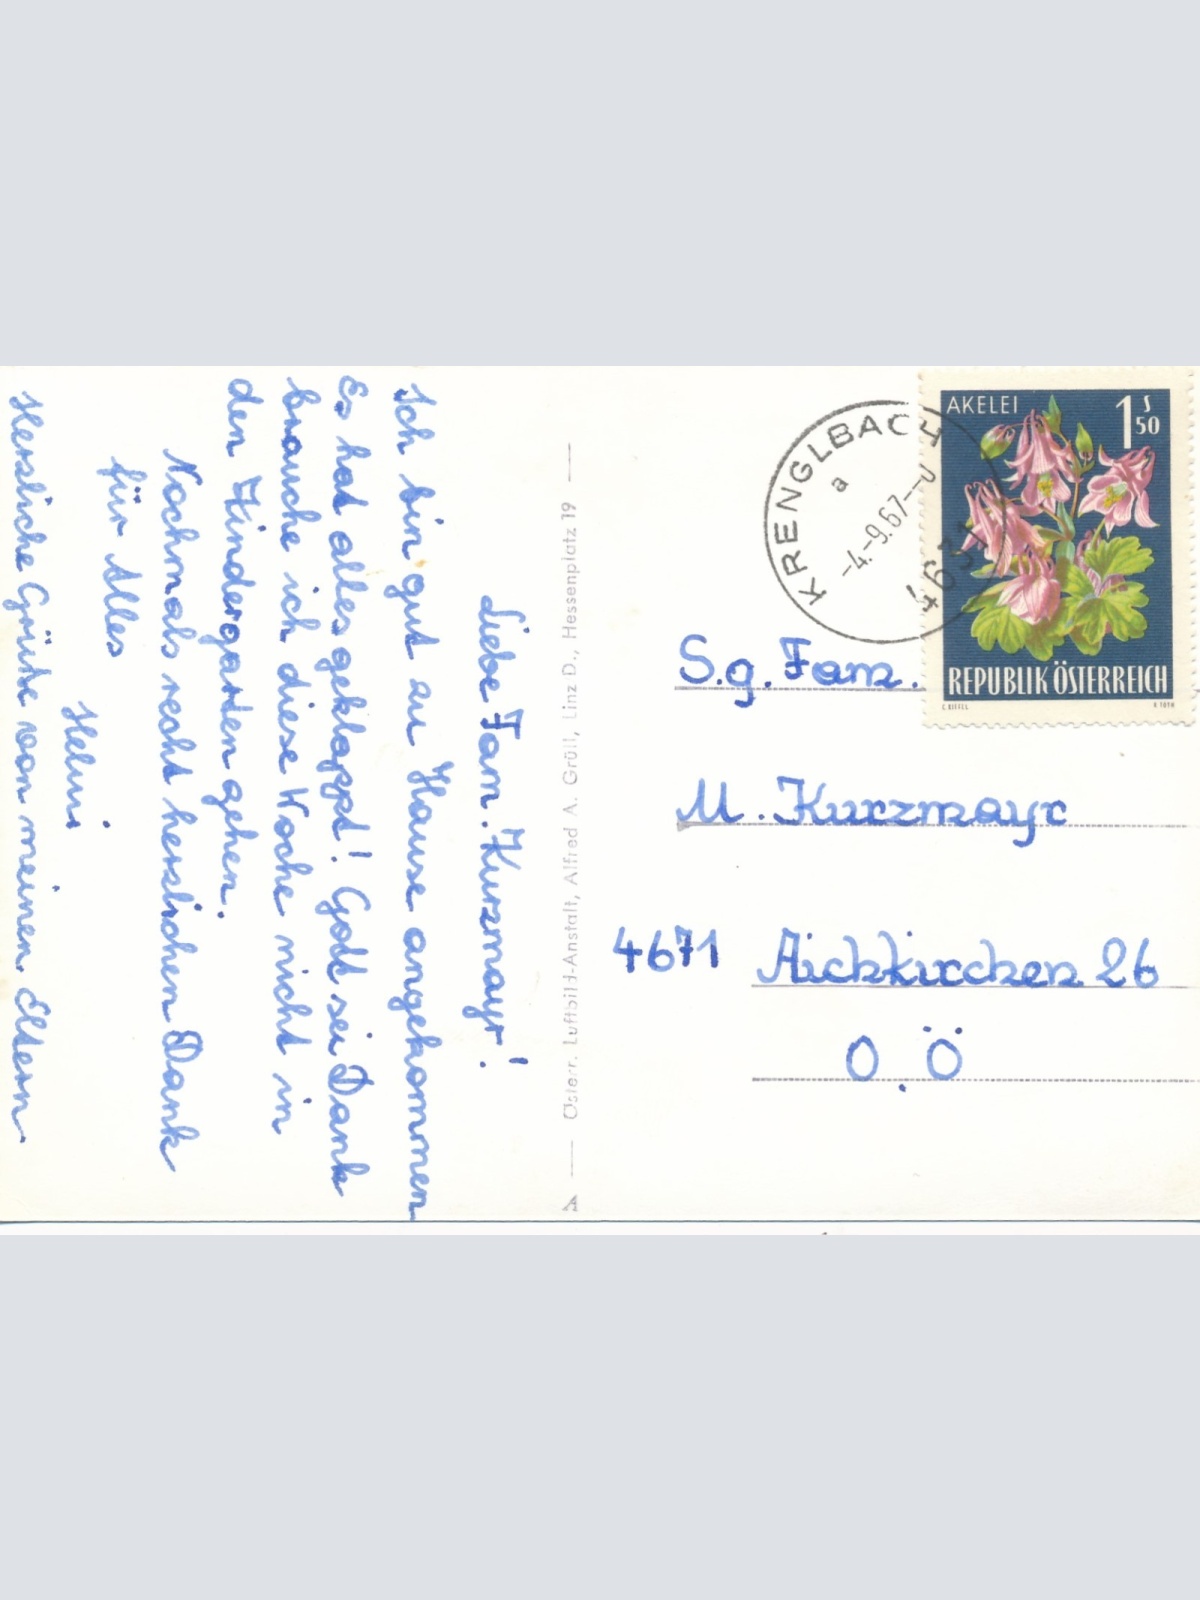 Liebe Fam. Kurzmayr!
Ich bin gut zu Hause angekommen
Es hat alles geklappt! Gott sei Dank
brauche ich diese Woche nicht in
den Kindergarten gehen.
Nochmals recht herzlichen Dank
für Alles
Helmi.
Herzliche Grüße von meinen Eltern
A — Österr. Luftbild-Anstalt, Alfred A. Grüll, Linz D., Hessenplatz 19 —
KRENGLBACH
a
-4.-9.67--0
* 4631
AKELEI
1 S 50
REPUBLIK ÖSTERREICH
S.g. Fam.
M. Kurzmayr
4671 Aichkirchen 26
O.Ö